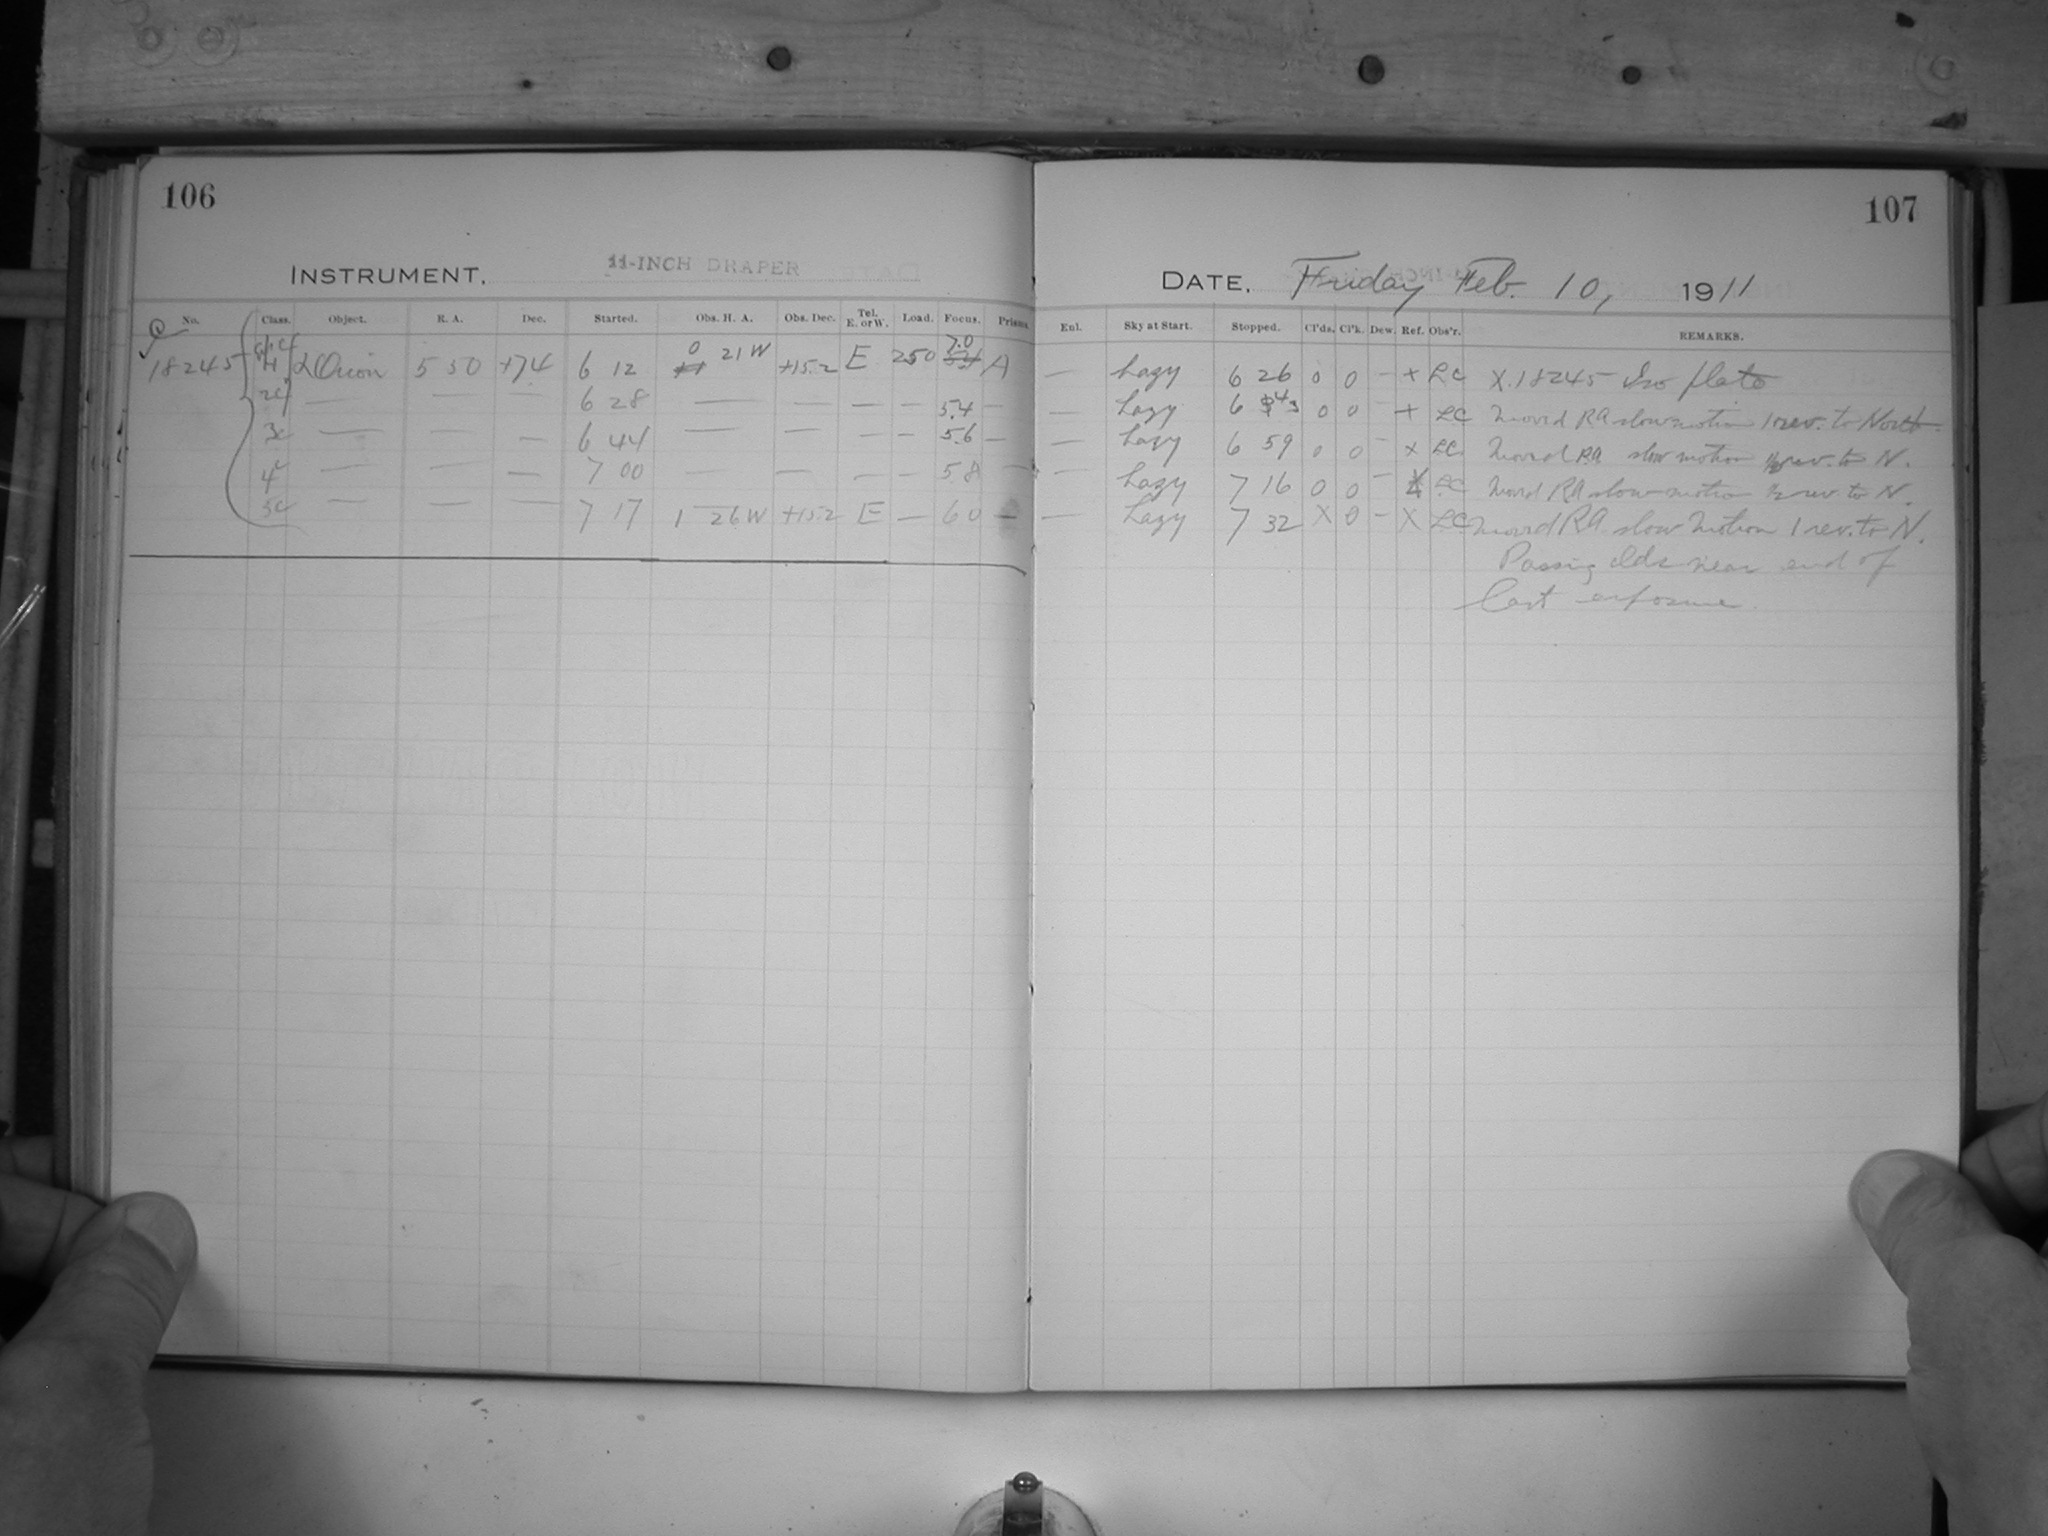 106
INSTRUMENT. 11-INCH DRAPER
No. Class. Object. R. A. Dec. Started. Obs. H. A. Obs. Dec. Tel. E. or W. Load. Focus. Prisms.
18245 α Orion 5 50 +7.4 6 12 0 21 W +15.2 E 250 7.0 A
— — — 6 28 — — — — 5.4 —
3c — — — 6 44 — — — — 5.6 —
4c — — — 7 00 — — — — 5.8 —
5c — — — 7 17 1 26 W +15.2 E — 6 0 —
107
DATE. Friday Feb. 10, 1911
Enl. Sky at Start. Stopped. Cl'ds. Cl'k. Dew. Ref. Obs'r. REMARKS.
— hazy 6 26 0 0 – + LC X.18245 Iso plate
— hazy 6 43 0 0 – + LC Moved RA slow motion 1 rev. to North
— hazy 6 59 0 0 – x LC Moved RA slow motion ½ rev. to N.
— hazy 7 16 0 0 – LC Moved RA slow motion ½ rev to N.
— hazy 7 32 X 0 – X LC Moved RA slow motion 1 rev. to N.
Passing clds near end of
last exposure.